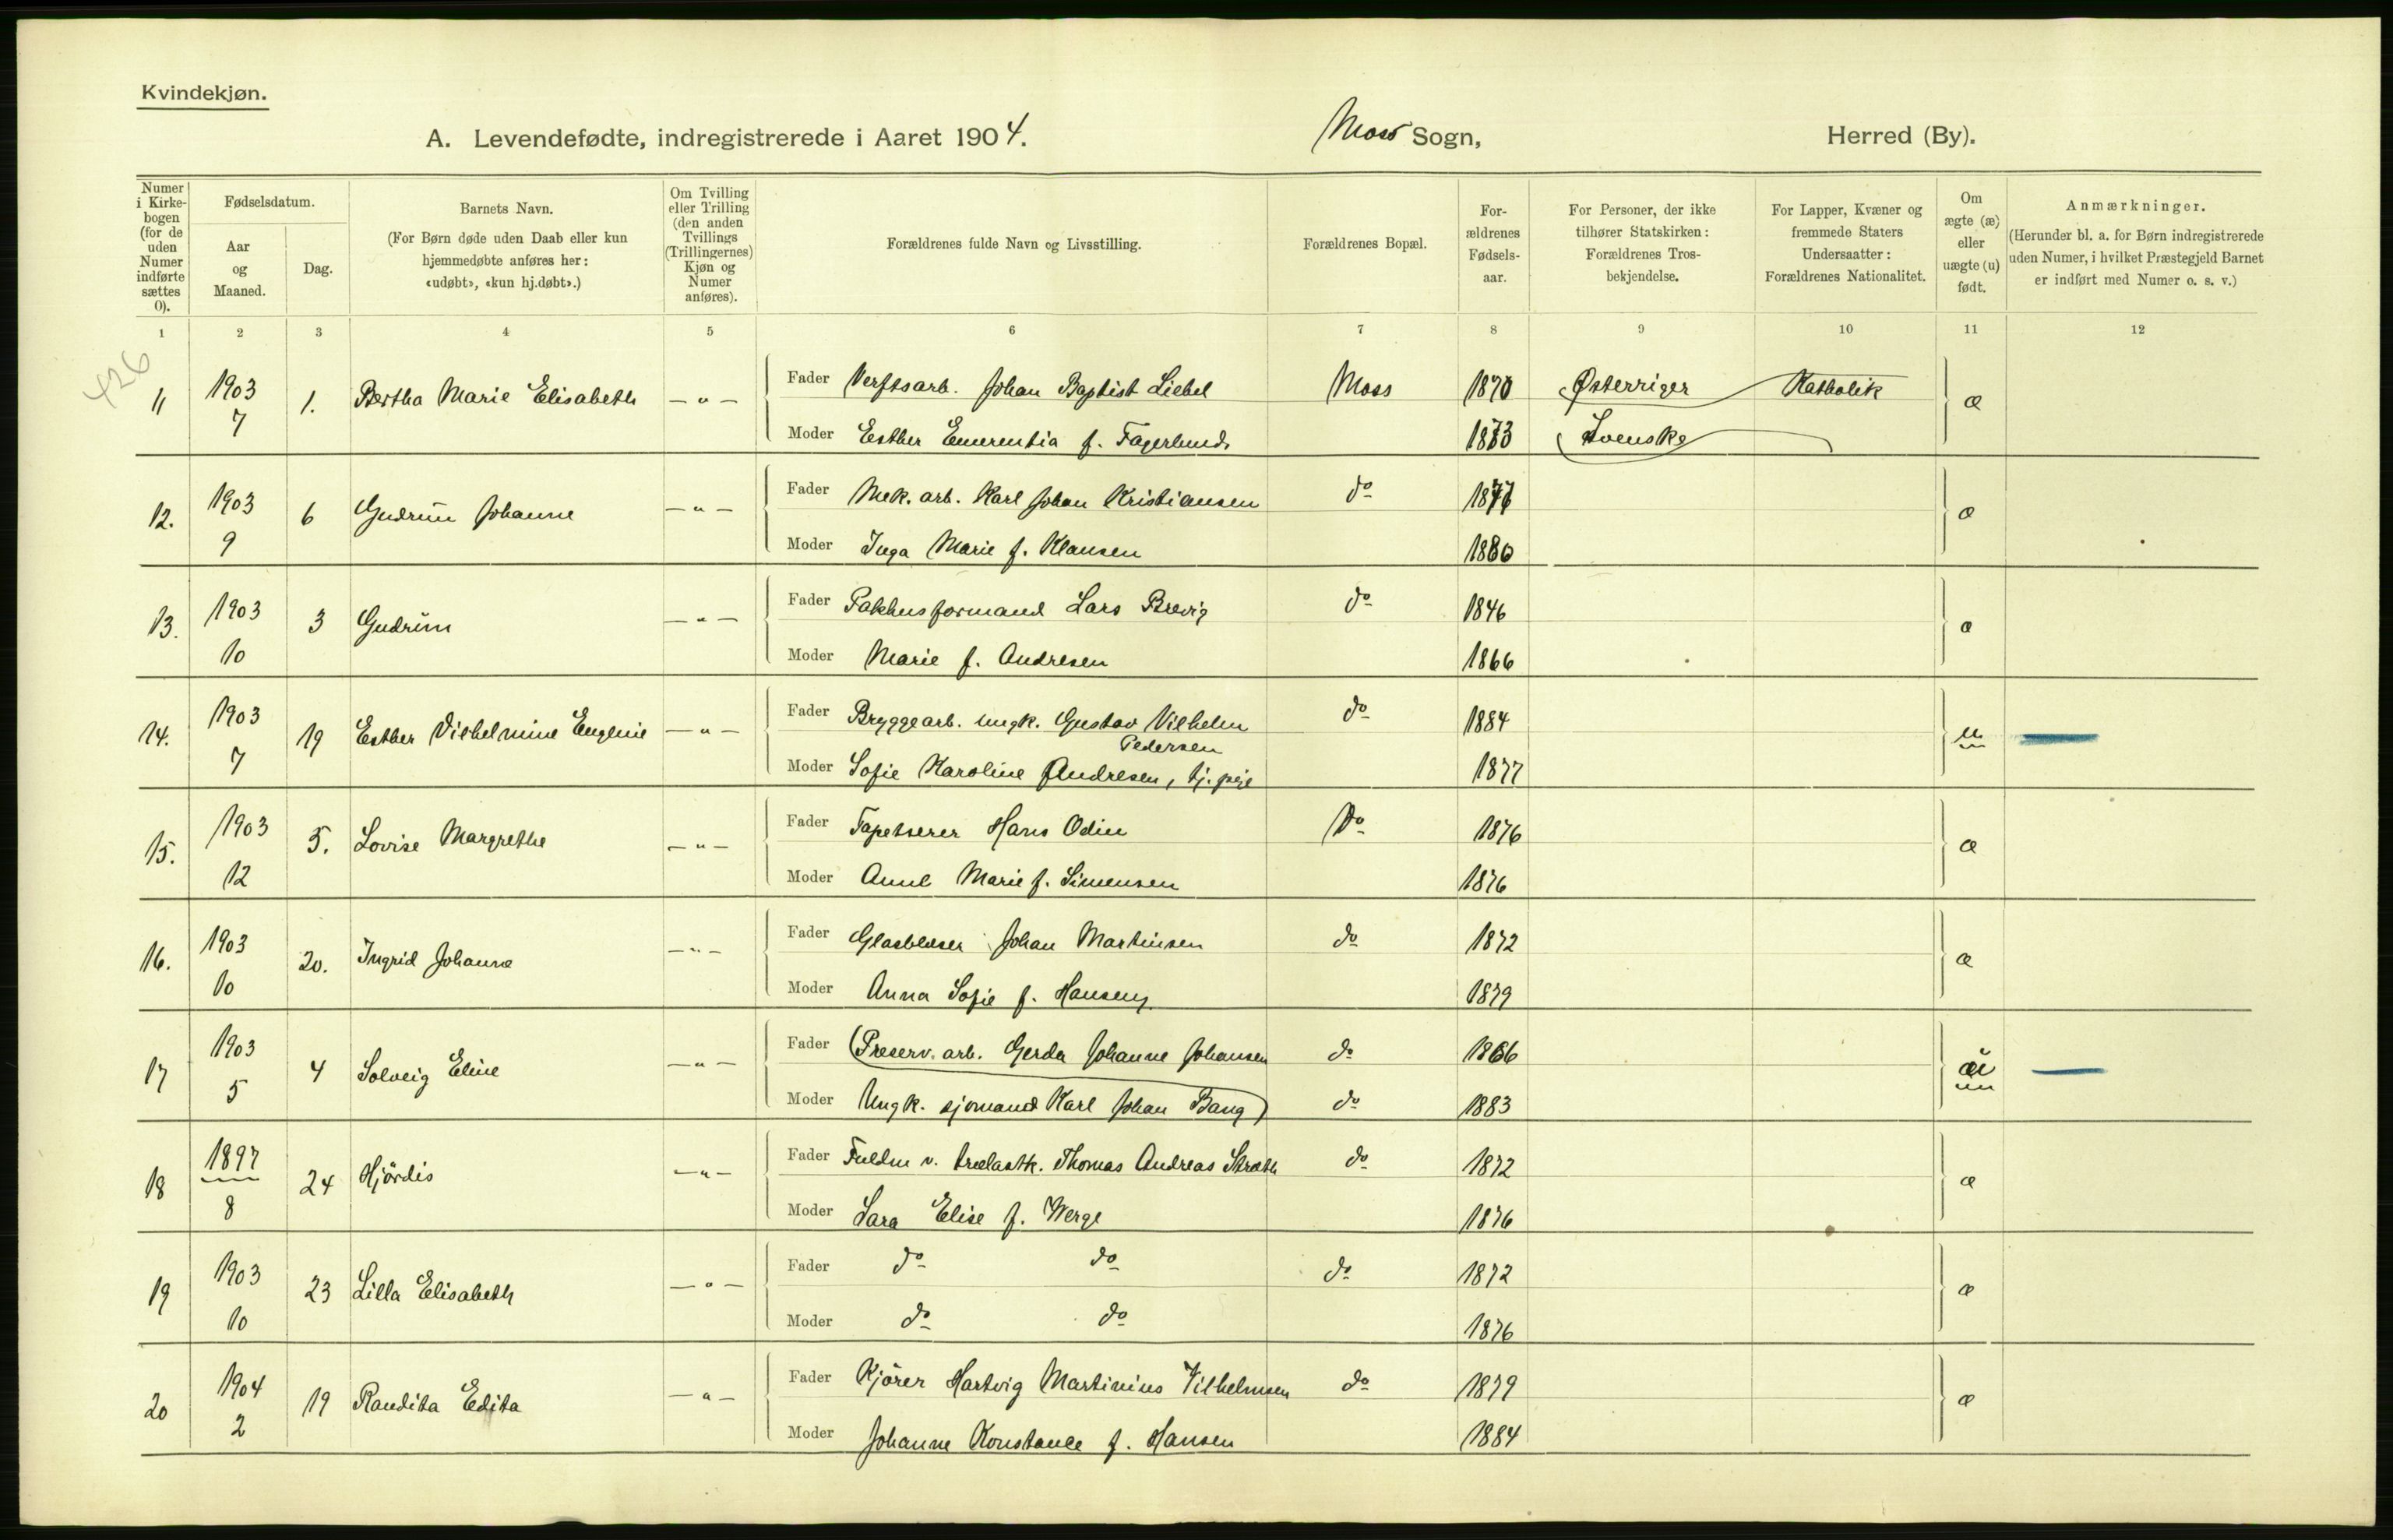 Kvindekjøn.
A. Levendefødte, indregistrerede i Aaret 1904. Moss Sogn, Herred (By).
Numer i Kirkebogen (for de uden Numer indførte sættes 0).
Fødselsdatum.
Aar og Maaned.
Dag.
Barnets Navn.
(For Børn døde uden Daab eller kun
hjemmedøbte anføres her:
«udøbt», «kun hj.døbt».)
Om Tvilling
eller Trilling
(den anden
Tvillings
(Trillingernes)
Kjøn og
Numer
anføres).
Forældrenes fulde Navn og Livsstilling.
Forældrenes Bopæl.
For-
ældrenes
Fødsels-
aar.
For Personer, der ikke
tilhører Statskirken:
Forældrenes Tros-
bekjendelse.
For Lapper, Kvæner og
fremmede Staters
Undersaatter:
Forældrenes Nationalitet.
Om
ægte (æ)
eller
uægte (u)
født.
Anmærkninger.
(Herunder bl. a. for Børn indregistrerede
uden Numer, i hvilket Præstegjeld Barnet
er indført med Numer o. s. v.)
1 2 3 4 5 6 7 8 9 10 11 12
426
11 1903 7 1. Bertha Marie Elisabeth — " — Fader Verftsarb. Johan Baptist Liebel Moss 1870 Østerriger Katholik æ
Moder Esther Emerentia f. Fagerlund 1873 Svenske
12. 1903 9 6 Gudrun Johanne — " — Fader Mek. arb. Karl Johan Kristiansen do 1877 æ
Moder Inga Marie f. Klausen 1880
13. 1903 10 3 Gudrun — " — Fader Pakhusformand Lars Brevig do 1846 æ
Moder Marie f. Andresen 1866
14. 1903 7 19 Esther Vilhelmine Eugenie — " — Fader Bryggearb. ungk. Gustav Vilhelm do 1884 u
Pedersen
Moder Sofie Karoline Andresen, tj.pige 1877
15. 1903 12 5. Lovise Margrethe — " — Fader Tapetserer Hans Odin Do 1876 æ
Moder Anne Marie f. Simensen 1876
16. 1903 10 20. Ingrid Johanne — " — Fader Glasblæser Johan Martinsen do 1872 æ
Moder Anna Sofie f. Hansen 1879
17 1903 5 4 Solveig Eline — " — Fader (Preserv. arb. Gerda Johanne Johansen do 1866
Moder Ungk. sjømand Karl Johan Bang) do 1883
18 1897 8 24 Hjördis — " — Fader Fuldm v. trælastk. Thomas Andreas Strøth do 1872 æ
Moder Sara Elise f. Werge 1876
19 1903 10 23 Lilla Elisabeth — " — Fader do do do 1872 æ
Moder do do 1876
20 1904 2 19 Randita Edita — " — Fader Kjörer Hartvig Martinius Vilhelmsen do 1879 æ
Moder Johanne Konstance f. Hansen 1884